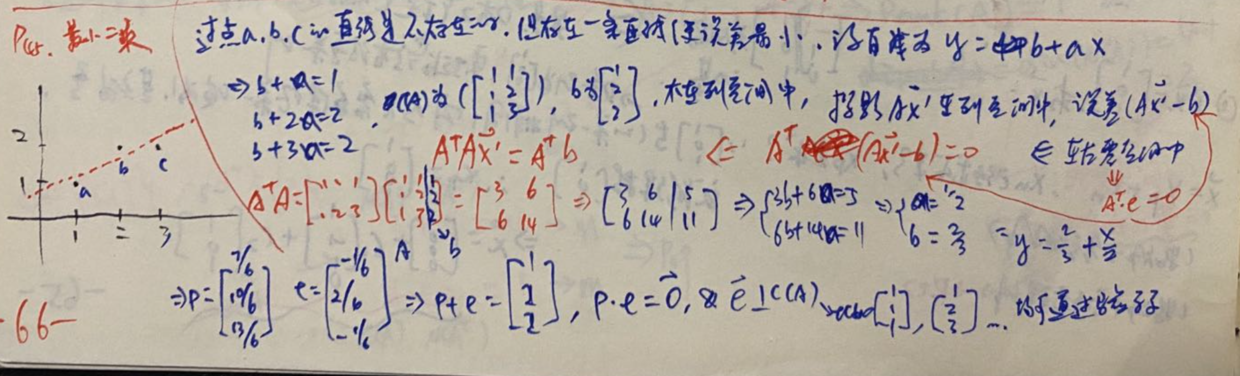 最小二乘
过点a.b.c的直线是不存在的.但存在一条直线使误差最小.设直线为 y=b+ax
⇒ b+a=1
b+2a=2
b+3a=2
C(A)为 ([1 1; 1 2; 1 3]), b为[1; 2; 2], 不在列空间中, 投影Ax̂'在列空间中, 误差(Ax̂'-b)
AᵀAx̂'=Aᵀb ⇐ Aᵀ(Ax̂'-b)=0 ⇐ 在左零空间中
⇓
Aᵀ·e=0
AᵀA=[1 1 1; 1 2 3][1 1 1; 1 2 2; 1 3 2]=[3 6; 6 14] ⇒ [3 6 5; 6 14 11] ⇒ {3b+6a=5; 6b+14a=11 ⇒ {a=1/2; b=2/3 = y=2/3+x/2
A b
⇒ p=[7/6; 10/6; 13/6] e=[-1/6; 2/6; -1/6] ⇒ p+e=[1; 2; 2], p·e=0⃗, & e⃗⊥C(A) [1; 1; 1], [1; 2; 3] ...
2
1
a b c
1 2 3
-66-